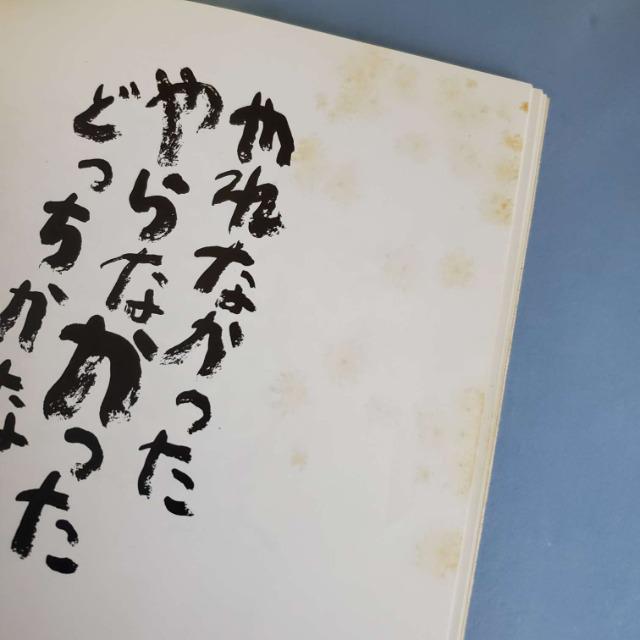 やれなかった
やらなかった
どっちかな